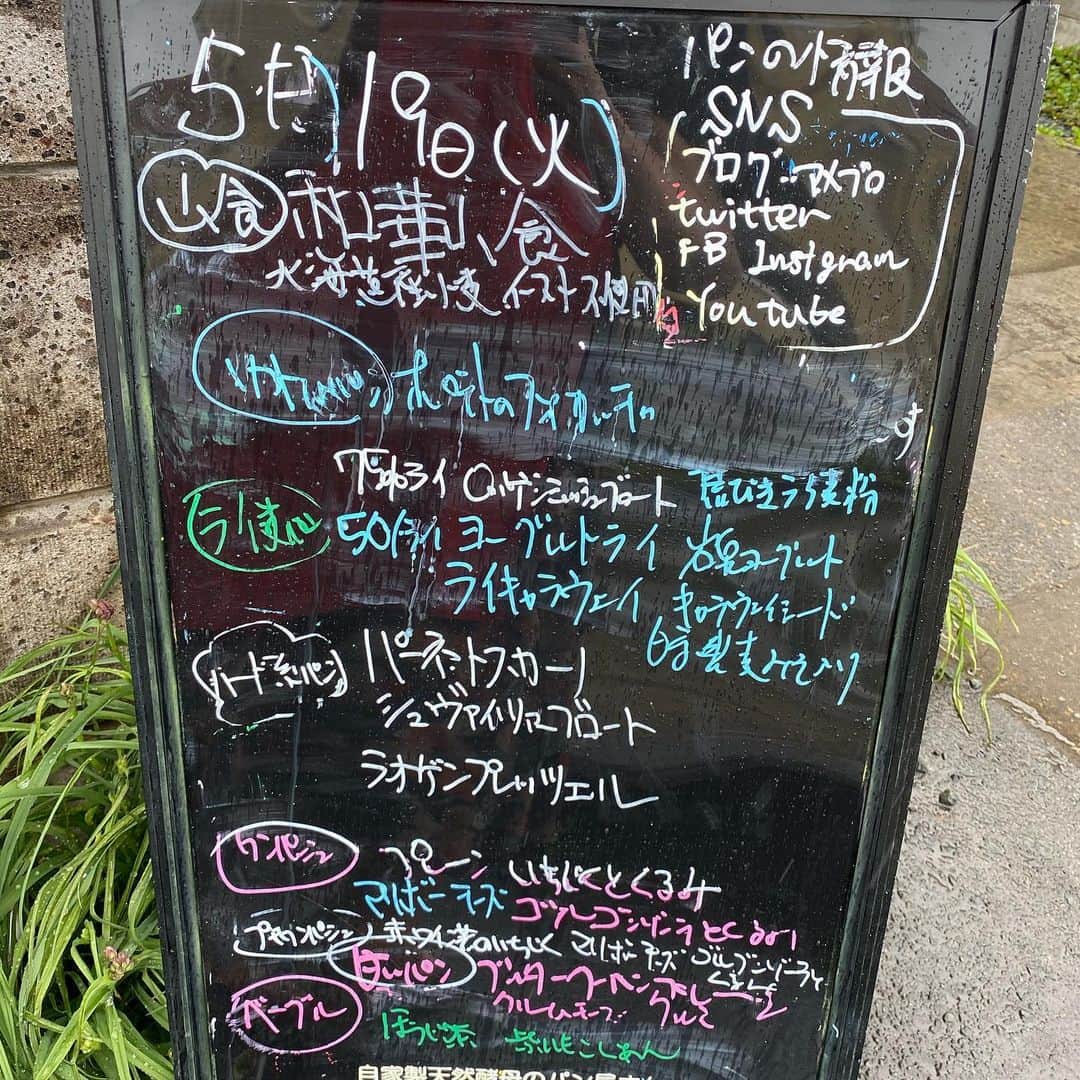 5月19日(火)
パンのト情報
SNS
ブログ:アメブロ
twitter
FB Instgram
Youtube
山食 和華、食
北海道産小麦 イースト不使用
ポテトのフォカッチャ
ライ麦パン
ライ ロッゲンシュロートブロート 粗びきライ麦粉
50%ライ ヨーグルトライ 岩泉ヨーグルト
ライキャラウェイ キャラウェイシード
自家製麦みそ入り
ハード系パン パーネトスカーノ
シュヴァイツァーブロート
ラオゲンプレッツェル
カンパーニュ プレーン いちじくとくるみ
マリボーチーズ ゴルゴンゾーラとくるみ
チャンパシュー 赤ワイン煮のいちじく マリボーチーズ ゴルゴンゾーラとくるみ
クリームチーズ
ベーグル ほうじ茶 紫いもこしあん
自家製天然酵母のパン屋さん